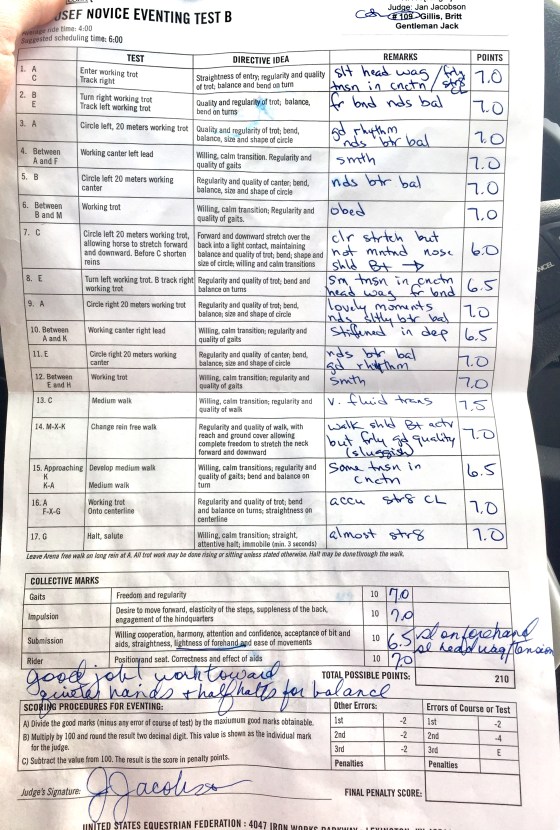 USEF NOVICE EVENTING TEST B
Average ride time: 4:00
Suggested scheduling time: 6:00
Judge: Jan Jacobson
# 109 Gillis, Britt
Gentleman Jack
TEST DIRECTIVE IDEA REMARKS POINTS
1. A Enter working trot
C Track right
Straightness of entry; regularity and quality of trot; balance and bend on turn
slt head wag / frly str8
tnsn in cnctn
7.0
2. B Turn right working trot
E Track left working trot
Quality and regularity of trot; balance, bend on turns
fr bnd nds bal
7.0
3. A Circle left, 20 meters working trot
Quality and regularity of trot; bend, balance, size and shape of circle
gd rhythm
nds btr bal
7.0
4. Between A and F Working canter left lead
Willing, calm transition. Regularity and quality of gaits
smth
7.0
5. B Circle left 20 meters working canter
Regularity and quality of canter; bend, balance, size and shape of circle
nds btr bal
7.0
6. Between B and M Working trot
Willing, calm transition; Regularity and quality of gaits.
obed
7.0
7. C Circle left 20 meters working trot, allowing horse to stretch forward and downward. Before C shorten reins
Forward and downward stretch over the back into a light contact, maintaining balance and quality of trot; bend; shape and size of circle; willing and calm transitions
clr strtch but
not mntnd nose
shld Bt →
6.0
8. E Turn left working trot. B track right working trot
Regularity and quality of trot; bend and balance on turns
sm tnsn in cnctn
head wag fr bnd
6.5
9. A Circle right 20 meters working trot
Regularity and quality of trot; bend, balance; size and shape of circle
lovely momnts
nds sltly btr bal
7.0
10. Between A and K Working canter right lead
Willing, calm transition; regularity and quality of gaits
stiffened in dep
6.5
11. E Circle right 20 meters working canter
Regularity and quality of canter; bend, balance, size and shape of circle
nds btr bal
gd rhythm
7.0
12. Between E and H Working trot
Willing, calm transition; regularity and quality of gaits
smth
7.0
13. C Medium walk
Willing, calm transition; regularity and quality of walk
v. fluid trans
7.5
14. M-X-K Change rein free walk
Regularity and quality of walk, with reach and ground cover allowing complete freedom to stretch the neck forward and downward
walk shld Bt actv
but frly gd quality
(sluggish)
7.0
15. Approaching K Develop medium walk
K-A Medium walk
Willing, calm transitions; regularity and quality of gaits; bend and balance on turn
Some tnsn in
cnctn
6.5
16. A Working trot
F-X-G Onto centerline
Regularity and quality of trot; bend and balance on turns; straightness on centerline
accu str8 CL
7.0
17. G Halt, salute
Willing, calm transition; straight, attentive halt; immobile (min. 3 seconds)
almost str8
7.0
Leave Arena free walk on long rein at A. All trot work may be done rising or sitting unless stated otherwise. Halt may be done through the walk.
COLLECTIVE MARKS
Gaits Freedom and regularity 10 7.0
Impulsion Desire to move forward, elasticity of the steps, suppleness of the back, engagement of the hindquarters 10 7.0
Submission Willing cooperation, harmony, attention and confidence, acceptance of bit and aids, straightness, lightness of forehand and ease of movements 10 6.5 sl on forehand
sl head wag/tension
Rider Position and seat. Correctness and effect of aids 10 7.0
TOTAL POSSIBLE POINTS: 210
Good job! work toward
quieter hands + half halts for balance
SCORING PROCEDURES FOR EVENTING:
A) Divide the good marks (minus any error of course of test) by the maxiumum good marks obtainable.
B) Multiply by 100 and round the result two decimal digit. This value is shown as the individual mark for the judge.
C) Subtract the value from 100. The result is the score in penalty points.
Other Errors:
1st -2
2nd -2
3rd -2
Penalties
Errors of Course or Test
1st -2
2nd -4
3rd E
Penalties
Judge's Signature: J Jacobson
FINAL PENALTY SCORE:
UNITED STATES EQUESTRIAN FEDERATION : 4047 IRON WORKS PARKWAY
CANCEL